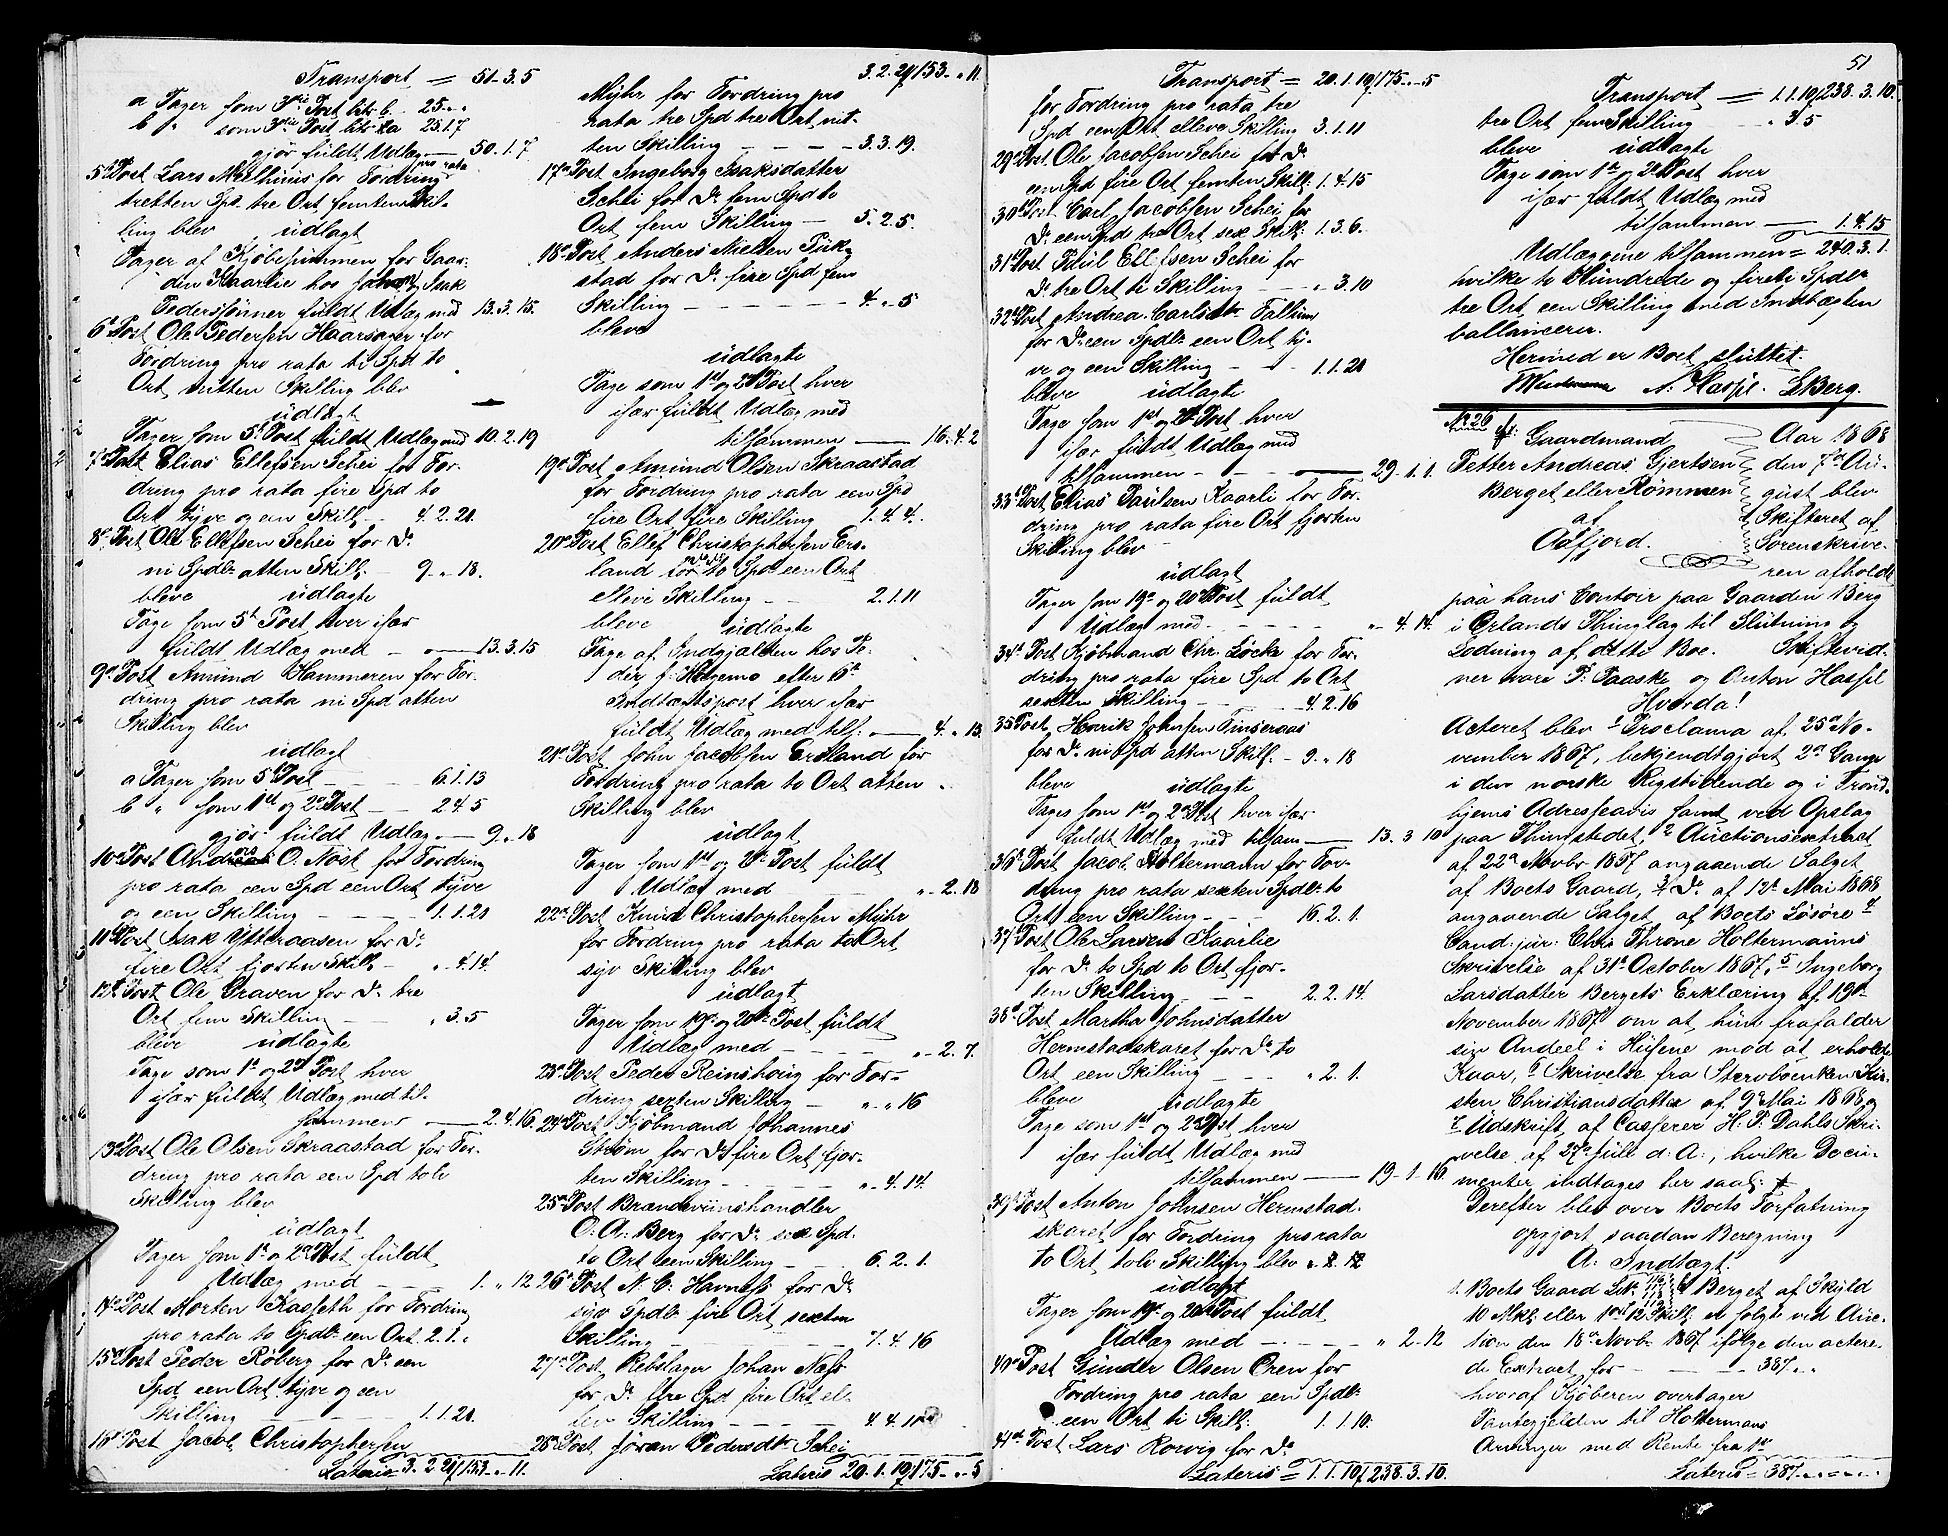 Transport = 51-3.5
a Tager som 3die Post litr b. 25.,.,
b „ som 3die Post litr a 25.1.7
gjør fuldt Udlæg — 50.1.7
5te Post Lars Melhuus for Fordring pro rata
tretten Spd tre Ort femten Skil-
ling blev udlagt
Tager af Kjøbesummen for Gaar-
den Kaarlie hos Johan og Isak
Pederssønner fuldt Udlæg med 13.3.15.
6te Post Ole Pedersen Haarsager for
Fordring pro rata ti Spd to
Ort nitten Skilling blev
udlagt
Tager som 5t Post fuldt Udlæg med 10.2.19
7de Post Elias Ellefsen Schei for For-
dring pro rata fire Spd to
Ort tyve og een Skill. - 4.2.21.
8de Post Ole Ellefsen Schei for Do
ni Spdlr atten Skill. - 9.„.18.
bleve udlagte
Tage som 5t Post hver især
fuldt Udlæg med - — 13.3.15
9de Post Amund Hammeren for For-
dring pro rata ni Spd atten
Skilling blev
udlagt
a Tager som 5t Post — 6.1.13
b „ som 1st og 2d Post — 2.4.5
gjør fuldt Udlæg — 9.„.18
10de Post Anders O. Nøst for Fordring
pro rata een Spd een Ort tyve
og een Skilling - - - 1.1.21
11te Post Isak Ytteraasen for Do
fire Ort fjorten Skill. - „.4.14.
12te Post Ole Graven for Do tre
Ort fem Skilling - „.3.5
bleve udlagte
Tage som 1st og 2d Post hver
især fuldt Udlæg med til-
sammen — 2.4.16.
13de Post Ole Olsen Skraastad for For-
dring pro rata een Spd tolv
Skilling blev
udlagt
Tager som 1st og 2d Post fuldt
Udlæg med - - 1.„.12
14de Post Morten Kasseth for Fordring
pro rata to Spdlr een Ort 2.1.„
15de Post Peder Røberg for Do een
Spd een Ort tyve og een
Skilling - - - 1.1.21.
16de Post Jacob Christophersen
Lateris 3.2.21/153-„.11.
3.2.21/153-„.11.
Myhr for Fordring pro
rata tre Spd tre Ort nit-
ten Skilling - - - 3.3.19.
17de Post Ingeborg Isaksdatter
Schei for Do fem Spd to
Ort fem Skilling - 5.2.5.
18de Post Anders Nielsen
stad for Do fire Spd fem
Skilling - - - 4.„.5
bleve
udlagte
Tage som 1st og 2d Post hver
især fuldt Udlæg med
tilsammen — 16.4.2
19de Post Amund Olsen Skraastad
for Fordring pro rata een Spd
fire Ort fire Skilling 1.4.4.
20de Post Ellef Christophersen Ers-
land for to Spd een Ort
elleve Skilling - - 2.1.11
bleve udlagte
Tage af Indgjælden hos Pe-
der J. efter 6te
Indtægtspost hver især
fuldt Udlæg med tils. — 4.„.15
21de Post John Jacobsen Ersland for
Fordring pro rata to Ort atten
Skilling blev
udlagt
Tager som 1st og 2d Post fuldt
Udlæg med „-2.18
22de Post Knud Christophersen Myhr
for Fordring pro rata to Ort
syv Skilling blev
udlagt
Tager som 19de og 20de Post fuldt
Udlæg med - - „-2.7.
23de Post Peder Reinshoug for For-
dring sexten Skilling - „.„.16
24de Post Kjøbmand Johannes
Strøm for Do fire Ort fjor-
ten Skilling - - - „.4.14.
25de Post Brændeviinshandler
O. A. Berg for Do sex Spd.
to Ort een Skilling - 6.2.1.
26de Post N. C. Havness for Do
syv Spdlr fire Ort sexten
Skilling - - - 7.4.16
27de Post Rebslager Johan Næss
for Do fire Spd fire Ort el-
leve Skilling - - - 4.4.11
28de Post Jøran Pedersdtr Schei
Lateris 20.1.19/175-„-5
Transport = 20.1.19/175-„-5
for Fordring pro rata tre
Spd een Ort elleve Skilling 3.1.11
29de Post Ole Jacobsen Schei for Do
een Spd fire Ort femten Skill. 1.4.15
30te Post Carl Jacobsen Schei for
Do een Spd tre Ort sex Skill. 1.3.6.
31te Post Paul Ellefsen Schei for
Do tre Ort ti Skilling - „.3.10
32de Post Andrea Carlsdtr
for Do een Spdlr een Ort ty-
ve og een Skilling - - 1.1.21
bleve udlagte
Tage som 1st og 2d Post hver
især fuldt Udlæg med
tilsammen - - — 29.1.1.
33de Post Elias Paulsen Kaarli for For-
dring pro rata fire Ort fjorten
Skilling blev
udlagt
Tager som 19de og 20de Post fuldt
Udlæg med - - - „-4.14.
34de Post Kjøbmand Chr. Løcke for For-
dring pro rata fire Spd to Ort
sexten Skilling - - 4.2.16
35te Post Henrik Johnsen Finseraas
for Do ni Spd atten Skill. - 9.„.18
bleve udlagte
Tages som 1st og 2d Post hver især
fuldt Udlæg med tilsam — 13.3.10
36te Post Jacob Holtermann for For-
dring pro rata sexten Spdlr to
Ort een Skilling - - 16.2.1.
37te Post Ole Larsen Kaarlie
for Do to Spd to Ort fjor-
ten Skilling - - 2.2.14.
38te Post Martha Johnsdatter
Hermstadskaret for Do to
Ort een Skilling - - „.2.1.
bleve udlagte
Tage som 1st og 2d Post hver
især fuldt Udlæg med
tilsammen — 19.1.16
39te Post Anton Johnsen Hermstad-
skaret for Fordring pro rata
to Ort tolv Skilling blev „.2.12
udlagt
Tager som 19de og 20de Post fuldt
Udlæg med - - - „.2.12
40de Post Gunder Olsen Oren for
Fordring pro rata een Spdlr
een Ort ti Skill. - 1.1.10.
41de Post Lars Rorvig for Do
Lateris = 1.1.10/238.3.10.
51
Transport = 1.1.10/238.3.10.
tre Ort fem Skilling - „.3.5
bleve udlagte
Tage som 1st og 2d Post hver
især fuldt Udlæg med
tilsammen — 1.4.15
Udlæggene tilsammen = 240.3.1.
hvilke to Hundrede og firti Spdlr
tre Ort een Skilling med Indtægten
ballancerer.
Hermed er Boet sluttet.
A. Hassel. LBerg.
No 26 Gaardmand
Petter Andreas Gjertsen
Berget eller Rømmen
af
Aafjord.
Aar 1868
den 7de Au-
gust blev
Skifteret af
Sorenskrive-
ren afholdt
paa hans Contoir paa Gaarden Berg
i Ørlands Thinglag til Slutning og
Lodning af dette Boe. Skiftevid-
ner vare P. Paaske og Anton Hassel
Hvorda!
Acteret blev 1 Proclama af 25de No-
vember 1867, bekjendtgjort 2de Gange
i den norske Rigstidende og i Trond-
hjems Adresseavis samt ved Opslag
paa Thingstedet, 2 Auctionsextract
af 22de Novbr 1867 angaaende Salget
af Boets Gaard, 3 Do af 12te Mai 1868
angaaende Salget af Boets Løsøre 4
Cand. jur. Chrs Throne Holtermanns
Skrivelse af 31te October 1867, 5 Ingeborg
Larsdatter Bergets Erklæring af 19de
November 1867 om at hun frafalder
sin Andeel i Husene mod at erholde
Kaar, 6 Skrivelse fra Stervboenken Kir-
sten Christiansdatter af 9de Mai 1868 og
7 Udskrift af Casserer H. P. Dahls Skri-
velse af 27de Juli d. A., hvilke Docu-
menter indtages her saal.
Derefter blev over Boets Forfatning
opgjort saadan Beregning
A. Indtægt.
1. Boets Gaard Berget af Skyld
10 Mkl. eller 1 ort 12 Skill. er solgt ved Auc-
tion den 18de Novbr 1867 ifølge den actere-
de Extract for - - - 387.„.„
hvoraf Kjøberen overtager
Pantegjelden til Holtermans
Arvinger med Rente fra 1st
Lateris = 387.„.„